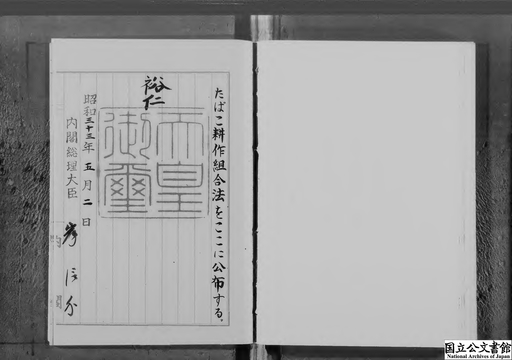 たばこ耕作組合法をここに公布する。
裕仁
天皇
御璽
昭和三十三年五月二日
内閣総理大臣
岸信介
国立公文書館
National Archives of Japan